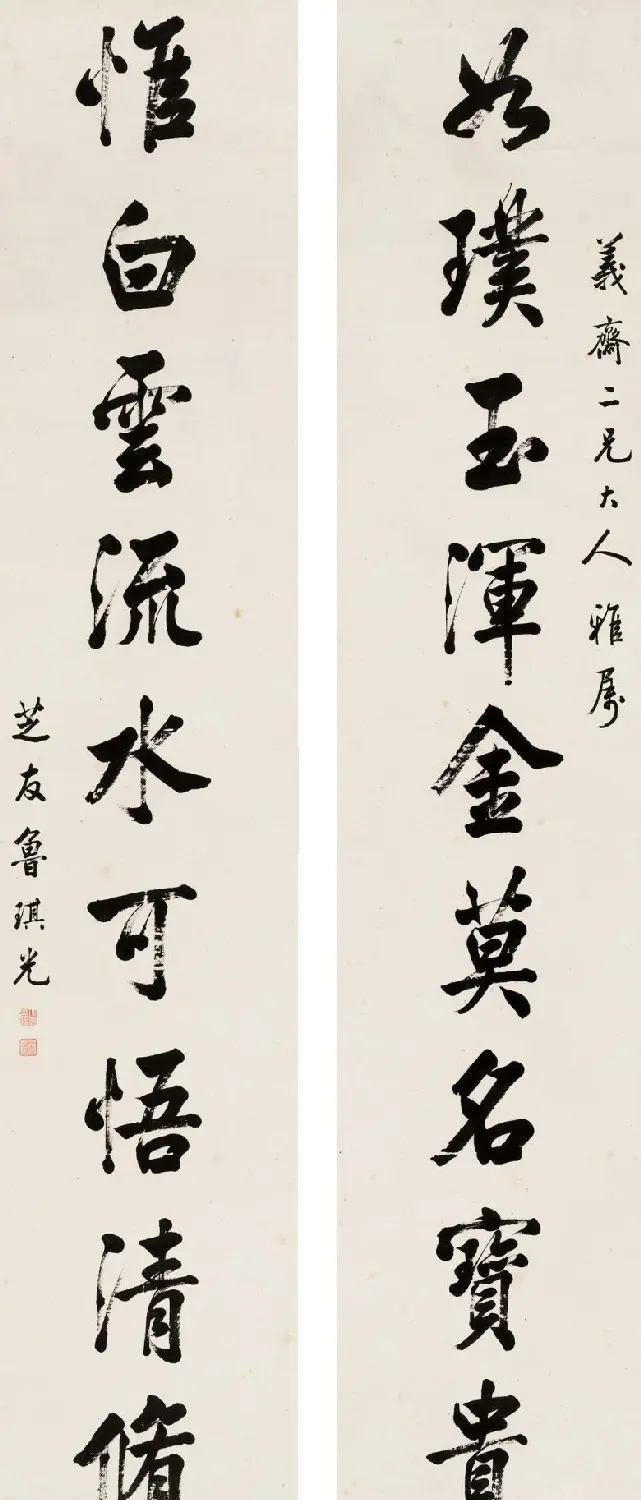 義齋二兄大人雅屬
如璞玉渾金莫名寶貴
惟白雲流水可悟清脩
芝友魯琪光